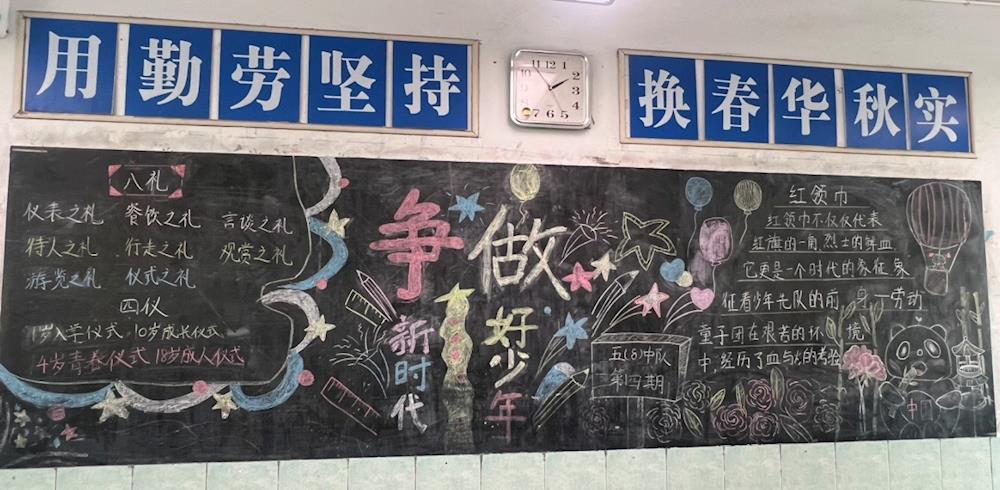 用勤劳坚持
换春华秋实
11 12 1
10 2
9 3
8 4
7 6 5
八礼
仪表之礼 餐饮之礼 言谈之礼
待人之礼 行走之礼 观赏之礼
游览之礼 仪式之礼
四仪
岁入学仪式 10岁成长仪式
4岁青春仪式 18岁成人仪式
争做
新时代
好少年
五(8)中队
第四期
红领巾
红领巾不仅仅代表
红旗的一角 烈士的鲜血
它更是一个时代的象征 象
征着少年先队的前 身 劳动
童子团在艰苦的环 境
中,经历了血与火的考验
中